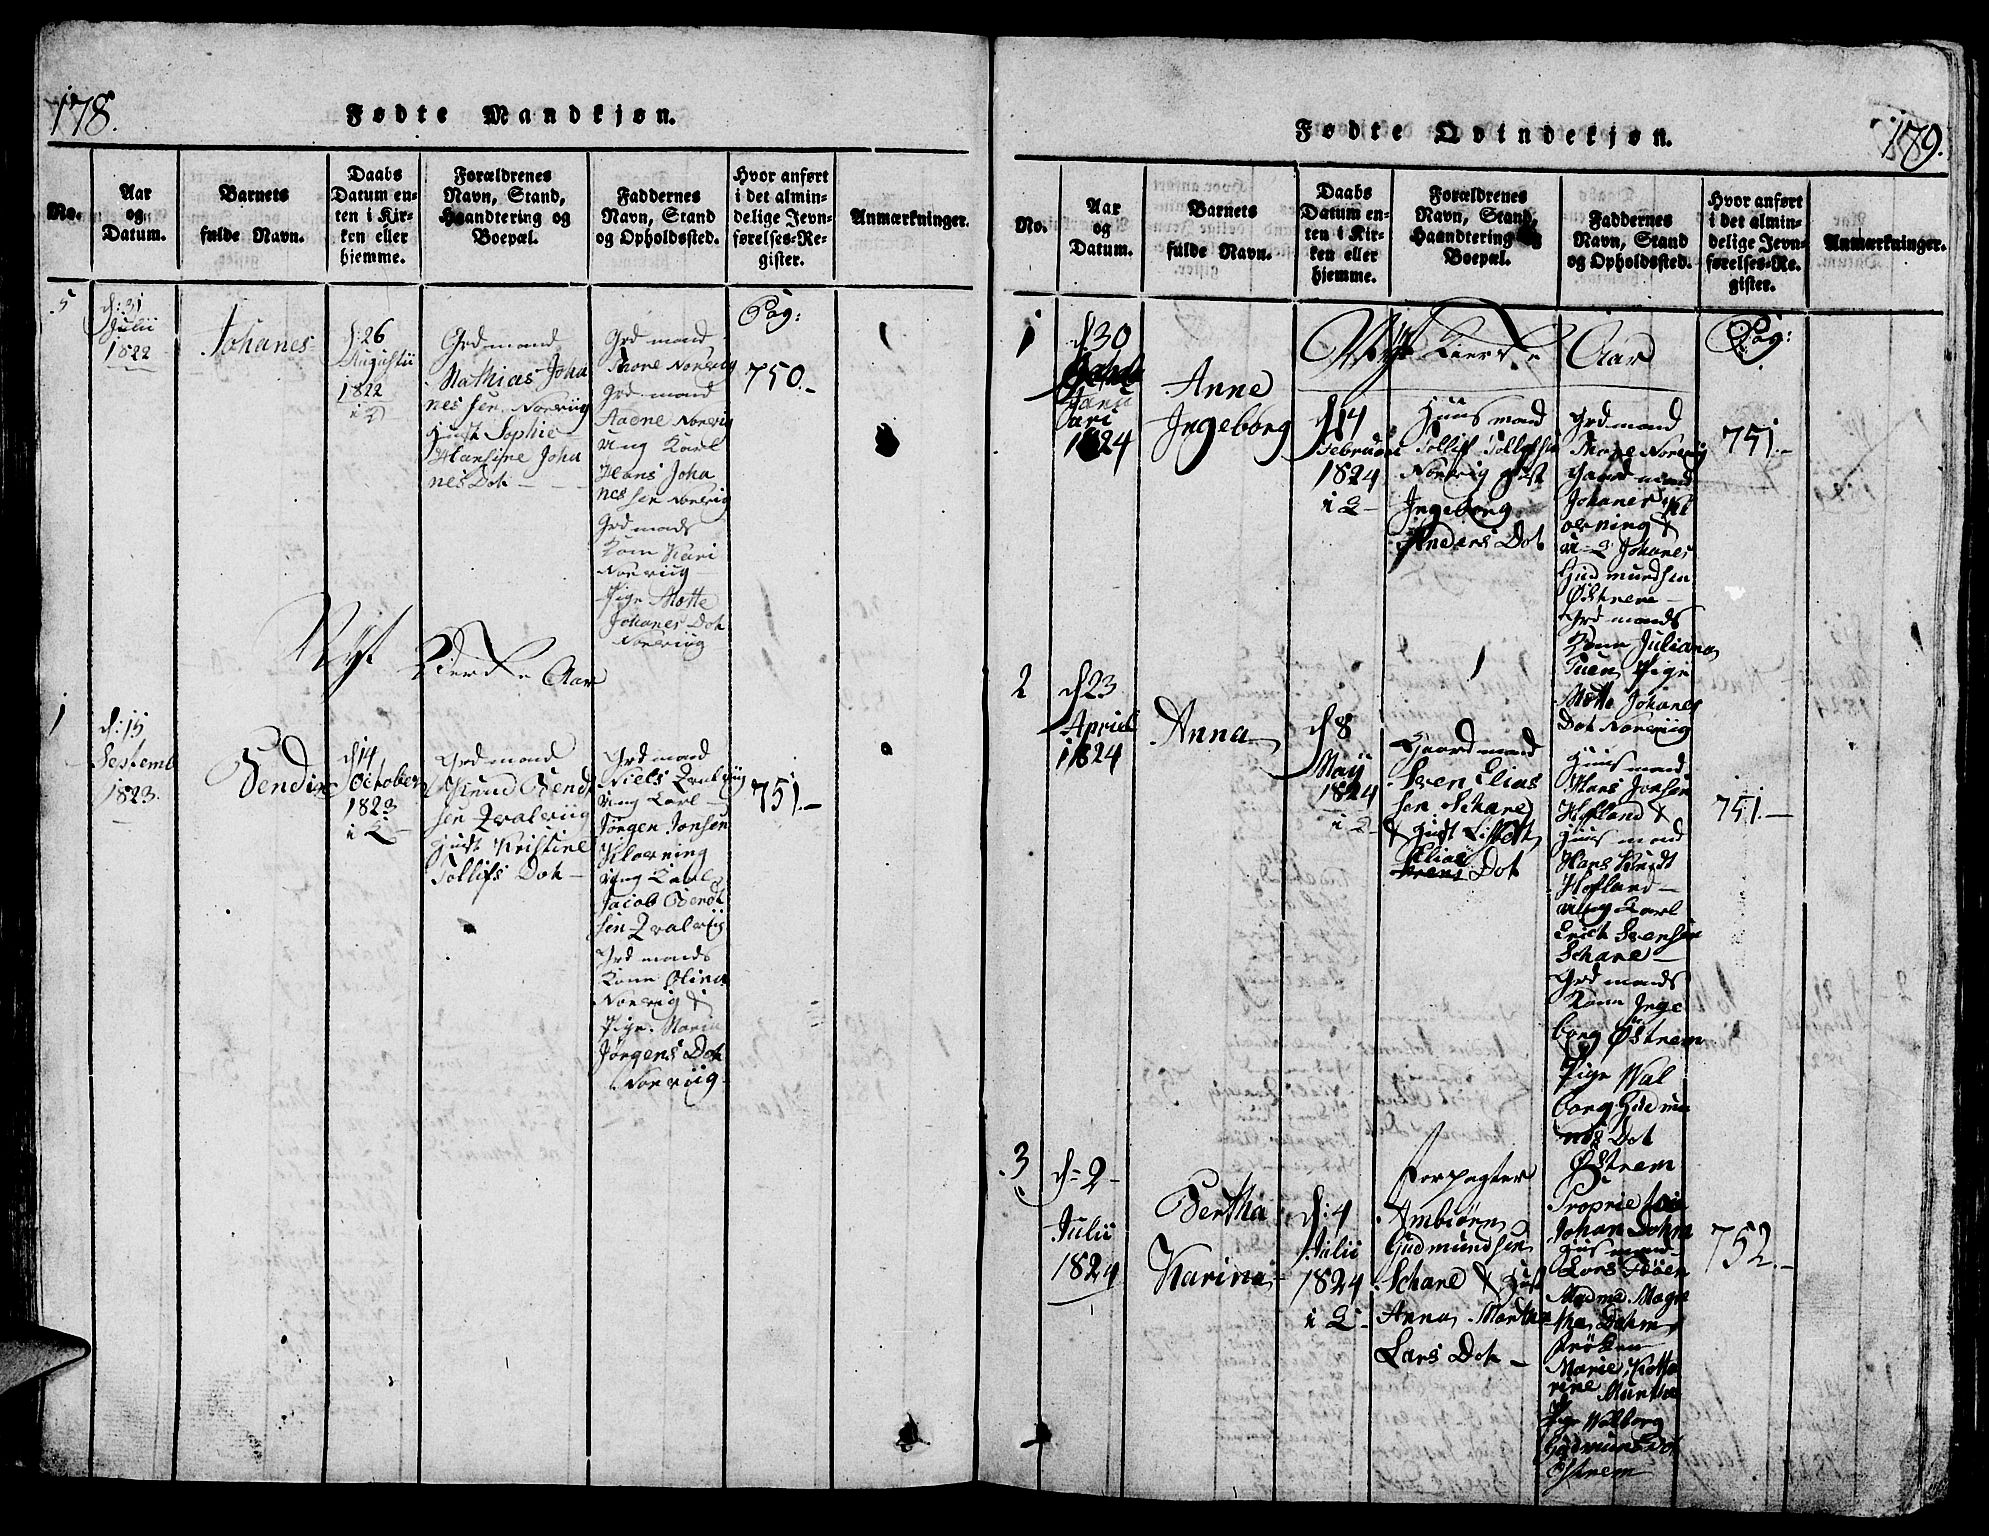 178.
Fødte Mandkjøn.
No.
Aar
og
Datum.
Barnets
fulde Navn.
Daabs
Datum en-
ten i Kir-
ken eller
hjemme.
Forældrenes
Navn, Stand,
Haandtering og
Boepæl.
Faddernes
Navn, Stand
og Opholdssted.
Hvor anført
i det almin-
delige Jevn-
førelses-Re-
gister.
Anmærkninger.
5
d: 31
Julii
1822
Johanes
d: 26
Augustii
1822
i K
Grdmand
Mathias Joha
nes sen Norviig
Hust Sophie
Hansine Joha
nes Dot
Grdmand
Thore Norviig
Grdmand
Aadne Norvig
Ung Karl
Hans Joha
nes sen Norviig
Grdmands
Kone Kari
Norviig
Pige Motte
Johanes Dot
Norviig
Pag:
750.-
Nyt Kierke Aar
1
d: 15
Septemb
1823.
Bendix
d 14
October
1823
i K
Grdmand
Knud Bendt
sen Qvalviig
Hust Kristine
Tollifs Dot
Grdmand
Niels Qvalviig
Ung Karl
Jørgen Jonsen
Kloening
Ung Karl
Jacob Bendt
sen Qvalviig
Grdmands
Kone Olina
Norviig &
Pige Maria
Jørgens Dot
Norviig
751.-
179.
Fødte Qvindekjøn.
No.
Aar
og
Datum.
Barnets
fulde Navn.
Daabs
Datum en-
ten i Kir-
ken eller
hjemme.
Forældrenes
Navn, Stand,
Haandtering og
Boepæl.
Faddernes
Navn, Stand
og Opholdssted.
Hvor anført
i det almin-
delige Jevn-
førelses-Re-
gister.
Anmærkninger.
Nyt Kierke Aar
Pag:
1
d 30
Janu
ari
1824
Anne
Ingeborg
d 14
Februari
1824
i K
Huusmand
Tollif Tollifsen
Norvig Hust
Ingeborg
Anders Dot
Grdmand
Thore Norviig
Gaardmand
Johanes Kl
oening &
U-K Johanes
Gudmundsen
Østreem
Grdmands
Kone Juliana
Tuen Pige
Motte Johanes
Dot Norviig
751.-
2
d 23
Aprill
1824
Anna
d 8
Maij
1824
i K
Gaardmand
Sven Elias
sen Schare
& Hust Lisbeth
Elias Dot
Huusmand
Mons Jonsen
Hofland &
Huusmand
Hans Knudt
Hofland
Ung Karl
Erich Svensen
Schare
Grdmands
Kone Inge
borg Østrem
Pige Wal
borg Gudmu
nds Dot
Østrem
751.-
3
d: 2
Julii
1824
Bertha
Karina
d: 4
Julii
1824
i K
Forpagter
Ambiørn
Gudmundsen
Schare & Hust
Anna Martha
Lars Dot
Proprietair
Johan Dahm
Husmand
Lars Tøen
Madme Magre
tha Dahm
Frøken
Marie Katte
rine Munthe
Pige Walborg
Gudmunds Dot
Østrem
752.-